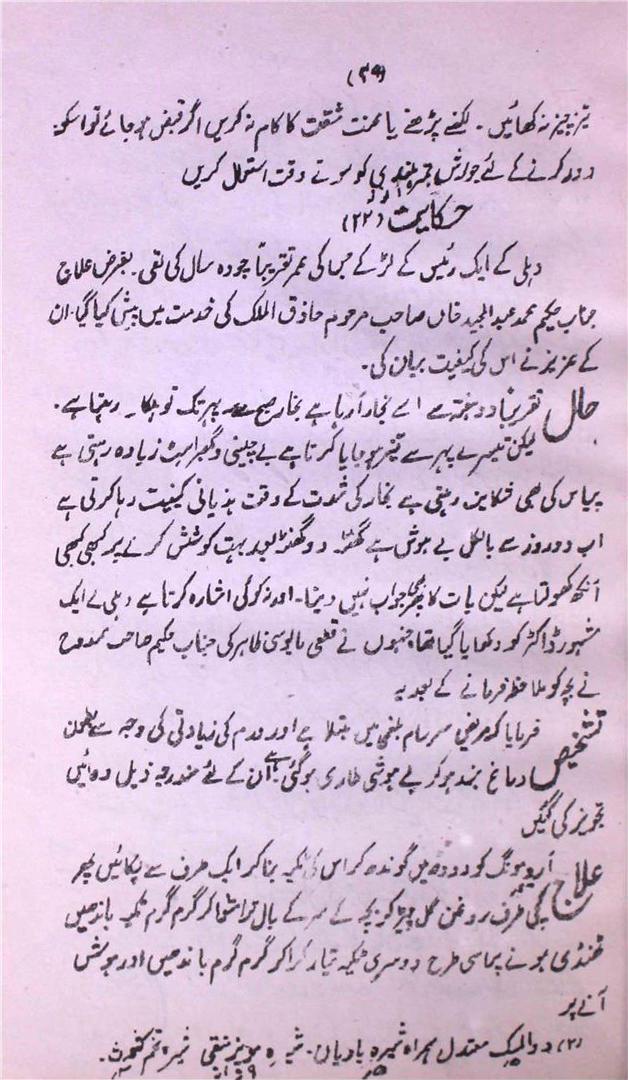 (۳۹)
تیز چیز نہ کھائیں ۔ لکھنے پڑھنے یا محنت مشقت کا کام نہ کریں اگر قبض ہو جائے تو اسکو
دور کرنے کے لئے جوارش تمر ہندی کو سوتے وقت استعمال کریں
حکایت (۲۲)
دہلی کے ایک رئیس کے لڑکے جسکی عمر تقریباً چودہ سال کی تھی ۔ بغرض علاج
جناب حکیم محمد عبدالمجید خاں صاحب مرحوم حاذق الملک کی خدمت میں پیش کیا گیا ۔ ان
کے عزیز نے اس کی کیفیت بیان کی ۔
حال تقریباً دو ہفتہ سے اسے بخار آرہا ہے بخار صبح سے سہ پہر تک تو ہلکا رہتا ہے ۔
لیکن تیسرے پہر سے تیز ہو جایا کرتا ہے بے چینی و گھبراہٹ زیادہ رہتی ہے
پیاس کی بھی شکایت رہتی ہے بخار کی شدت کے وقت ہذیانی کیفیت رہا کرتی ہے
اب دو روز سے بالکل بے ہوش ہے گھنٹہ دو گھنٹہ بعد بہت کوشش کرنے پر کبھی کبھی
آنکھ کھولتا ہے لیکن بات کا جواب نہیں دیتا ۔ اور نہ کوئی اشارہ کرتا ہے دہلی کے ایک
مشہور ڈاکٹر کو دکھایا گیا تھا جنہوں نے قطعی مایوسی ظاہر کی جناب حکیم صاحب ممدوح
نے بچہ کو ملاحظہ فرمانے کے بعد یہ
تشخیص فرمایا کہ مریض سرسام بلغمی میں مبتلا ہے اور ورم کی زیادتی کی وجہ سے بطن
دماغ بند ہو کر بے ہوشی طاری ہو گئی ہے ان کے لئے مندرجہ ذیل دوائیں
تجویز کی گئیں
علاج آرد مونگ کو دودھ میں گوندھ کر اس کی ٹکیہ بنا کر ایک طرف سے پکائیں پھر
کچی طرف روغن گل چپڑ کو بچہ کے سر کے بال ترشوا کر گرم گرم ٹکیہ باندھیں
ٹھنڈی ہونے پر اسی طرح دوسری ٹکیہ تیار کرا کر گرم گرم باندھیں اور ہوش
آنے پر
(۲) دوالمسک معتدل ہمراہ شیرہ بادیان ۔ شیرہ مویز منقی شیرہ تخم کثوث ۔